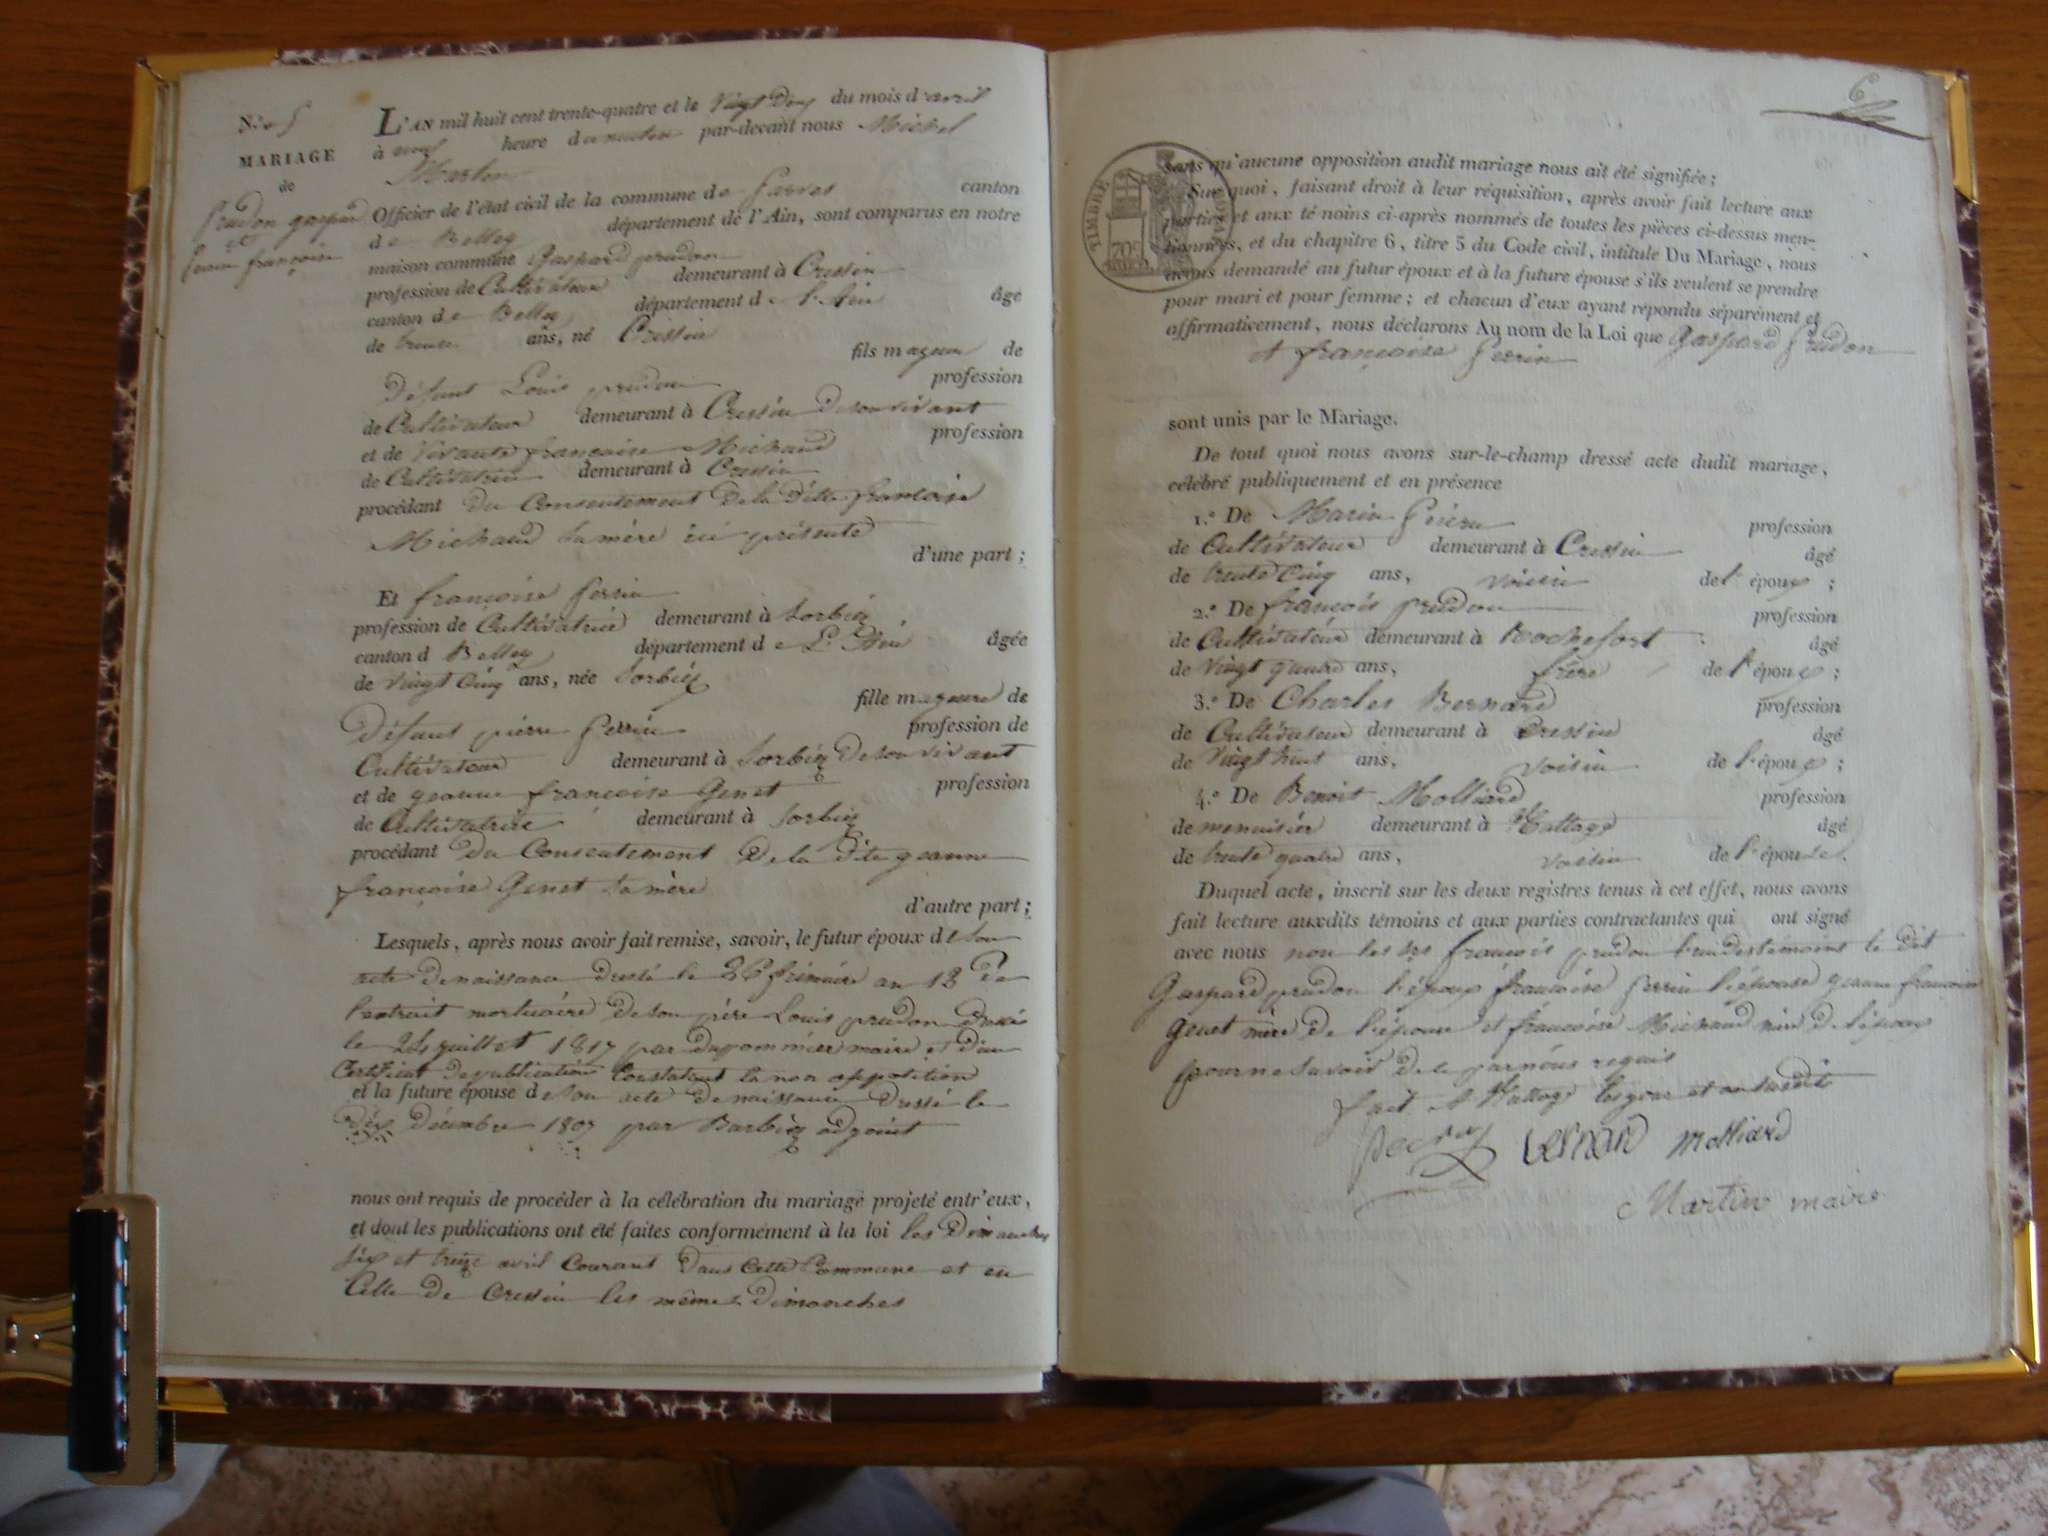 N.o 5
MARIAGE
de
Prudon gaspard
et
Perrin françoise
L'AN mil huit cent trente-quatre et le Vingt Deux du mois d'avril
à neuf heure du matin par-devant nous Michel
Martin
Officier de l'état civil de la commune de Parves canton
de Belley département de l'Ain, sont comparus en notre
maison commune Gaspard prudon
profession de Cultivateur demeurant à Cressin
canton de Belley département de l'Ain âgé
de trente ans, né Cressin
fils mageur de
Défunt Louis prudon profession
de Cultivateur demeurant à Cressin de son vivant
et de Vivante françoise Michaud profession
de Cultivatrice demeurant à Cressin
procédant du Consentement De la Ditte françoise
Michaud sa mère ici présente
d'une part ;
Et françoise Perrin
profession de Cultivatrice demeurant à Sorbiez
canton d Belley département de L'Ain âgée
de vingt Cinq ans, née Sorbiez
fille mageure de
Défunt pierre Perrin profession de
Cultivateur demeurant à Sorbiez De son vivant
et de geanne françoise Genet profession
de Cultivatrice demeurant à Sorbiez
procédant Du Consentement De la Dite geanne
françoise Genet sa mère
d'autre part ;
Lesquels, après nous avoir fait remise, savoir, le futur époux de son
acte De naissance Dressé le 26 frimaire an 12 De
l'extrait mortuaire De son père Louis prudon Dressé
le 24 guillet 1817 par Dupommier maire et D'un
Certificat De publication Constatant la non opposition
et la future épouse de son acte De naissance Dressé le
dix décembre 1807 par Barbier adgoint
nous ont requis de procéder à la célébration du mariage projeté entr'eux,
et dont les publications ont été faites conformément à la loi les Dimanches
six et treize avril Courant Dans Cette Commune et en
Celle De Cressin les mêmes Dimanches
6
TIMBRE ROYAL
70c
sans qu'aucune opposition audit mariage nous ait été signifiée ;
Sur quoi, faisant droit à leur réquisition, après avoir fait lecture aux
parties et aux témoins ci-après nommés de toutes les pièces ci-dessus men-
tionnées, et du chapitre 6, titre 5 du Code civil, intitulé Du Mariage, nous
avons demandé au futur époux et à la future épouse s'ils veulent se prendre
pour mari et pour femme ; et chacun d'eux ayant répondu séparément et
affirmativement, nous déclarons Au nom de la Loi que Gaspard Prudon
et françoise Perrin
sont unis par le Mariage.
De tout quoi nous avons sur-le-champ dressé acte dudit mariage,
célébré publiquement et en présence
1.o De Marin profession
de Cultivateur demeurant à Cressin âgé
de trente Cinq ans, voisin de l'époux ;
2.o De françois prudon profession
de Cultivateur demeurant à Rochefort âgé
de Vingt quatre ans, frère de l'époux ;
3.o De Charles Bernard profession
de Cultivateur demeurant à Cressin âgé
de Vingt huit ans, voisin de l'époux ;
4.o De Benoit Molliard profession
de menuisier demeurant à âgé
de trente quatre ans, voisin de l'épouse.
Duquel acte, inscrit sur les deux registres tenus à cet effet, nous avons
fait lecture auxdits témoins et aux parties contractantes qui ont signé
avec nous non les françois prudon témoins le dit
Gaspard prudon l'époux françoise Perrin l'épouse geanne françoise
Genet mère De l'épouse et françoise Michaud mère De l'époux
pour ne savoir De ce par nous requis
fait à les gour et an susdit
Molliard
Martin maire